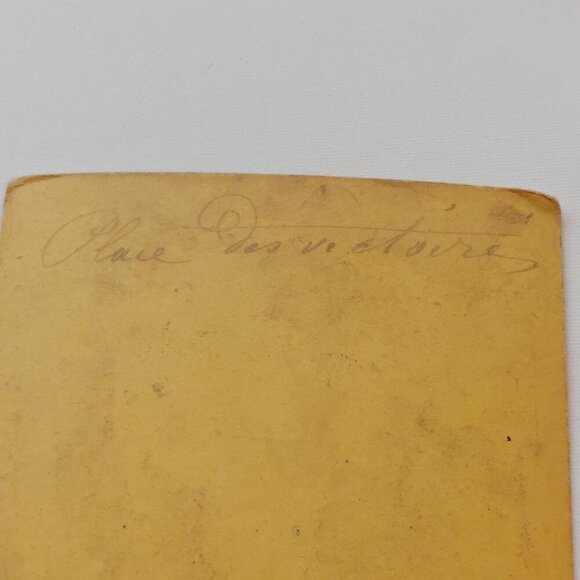 Place des victoires